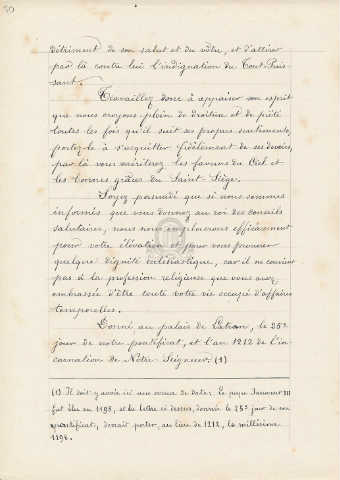 50
détriment de son salut et du vôtre, et d'attirer
par là contre lui l'indignation du Tout-Puis-
sant.
Travaillez donc à appaiser son esprit
que nous croyons plein de droiture et de piété
toutes les fois qu'il suit ses propres sentiments,
portez-le à s'acquitter fidèlement de ses devoirs,
par là vous mériterez les faveurs du Ciel et
les bonnes grâces du Saint-Siège.
Soyez persuadé que si nous sommes
informés que vous donnez au roi des conseils
salutaires, nous nous emploierons efficacement
pour votre élévation et pour vous procurer
quelque dignité ecclésiastique, car il ne convient
pas à la profession religieuse que vous avez
embrassée d'être toute votre vie occupé d'affaires
temporelles.
Donné au palais de Latran, le 25e
jour de notre pontificat, et l'an 1212 de l'in-
carnation de Notre Seigneur. (1)
(1) Il doit y avoir ici une erreur de date: le pape Innocent III
fut élu en 1198, et la lettre ci-dessus, donnée le 25e jour de son
pontificat, devait porter, au lieu de 1212, le millésime
1198.